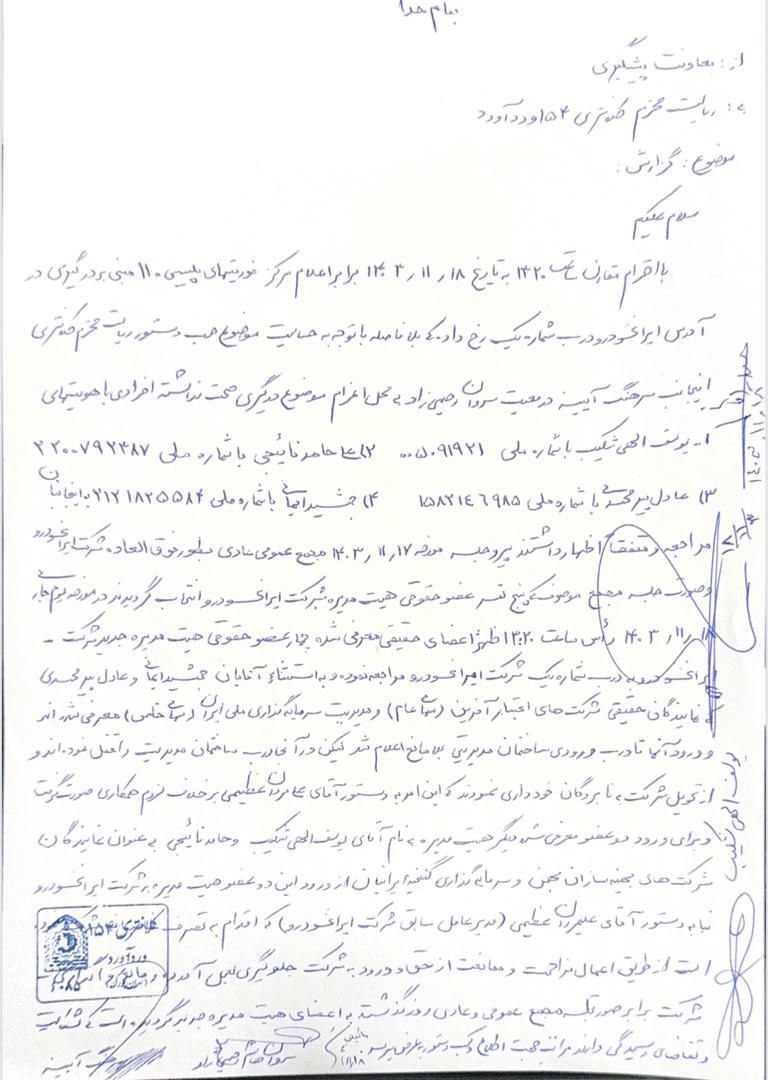 بنام خدا
از: معاونت پیشگیری
به: ریاست محترم کلانتری ۱۵۴ وردآورد
موضوع: گزارش:
سلام علیکم
با احترام مقارن ساعت ۱۳:۲۰ به تاریخ ۱۴۰۳/۱۱/۱۸ برابر اعلام مرکز فوریتهای پلیسی ۱۱۰ مبنی بر درگیری در
آدرس ایرانخودرو درب شماره یک رخ داده که بلافاصله با توجه به حساسیت موضوع حسب دستور ریاست محترم کلانتری
اینجانب سرهنگ آیینه در معیت ستوان رحیمی زاد به محل اعزام موضوع درگیری صحت نداشته افرادی با هویتهای
۱- یوسف الهی شکیب با شماره ملی ۰۰۵۰۹۱۹۲۱ ۲) حامد نائیجی با شماره ملی ۲۲۰۰۷۹۲۴۸۷
۳) عادل پیرمحمدی با شماره ملی ۱۵۸۲۱۴۶۹۸۵ ۴) جمشید ایمانی با شماره ملی ۲۱۲۱۸۲۵۵۸۴ به اینجانبان
مراجعه و متفقاً اظهار داشتند پیرو جلسه مورخه ۱۴۰۳/۱۱/۱۷ مجمع عمومی عادی بطور فوق العاده شرکت ایرانخودرو
و صورت جلسه مجمع موصوف که پنج نفر عضو حقوقی هیت مدیره شرکت ایرانخودرو انتخاب گردیدند در مورخه یوم جاری
۱۴۰۳/۱۱/۱۸ رأس ساعت ۱۳:۲۰ ظهر اعضای حقیقی معرفی شده چهار عضو حقوقی هیت مدیره جدید شرکت -
ایرانخودرو به درب شماره یک شرکت ایرانخودرو مراجعه نموده و به استثناء آقایان جمشید ایمانی و عادل پیرمحمدی
که نمایندگان حقیقی شرکت های اعتبار آفرین (سهامی عام) و مدیریت سرمایه گذاری ملی ایران (سهامی خاص) معرفی شده اند
و ورود آنها تا درب ورودی ساختمان مدیریتی بلامانع اعلام شد لیکن در آنجا درب ساختمان مدیریت را قفل نموده اند و
از تحویل شرکت به نامبردگان خودداری نمودند که این امر به دستور آقای علیمردان عظیمی بر خلاف لزوم همکاری صورت گرفت
و برای ورود دو عضو معرفی شده دیگر هیت مدیره به نام آقای یوسف الهی شکیب و حامد نائیجی به عنوان نمایندگان
شرکت های بهینه سازان بهمن و سرمایه گذاری گنجینه ایرانیان از ورود این دو عضو هیت مدیره به شرکت ایرانخودرو
بنا به دستور آقای علیمردان عظیمی (مدیرعامل سابق شرکت ایرانخودرو) که اقدام به تصرف
است از طریق اعمال مزاحمت و ممانعت از حق و ورود به شرکت جلوگیری بعمل آمده
شرکت برابر صورتجلسه مجمع عمومی و عادی روز گذشته به اعضای هیت مدیره جدید گردیده است که شکایت
و تقاضای رسیدگی دارند مراتب جهت اطلاع و کسب دستور بعرض میرسد
سرهنگ آیینه
کلانتری ۱۵۴
وردآورد
یوسف الهی شکیب
۱۴۰۳/۱۱/۱۸